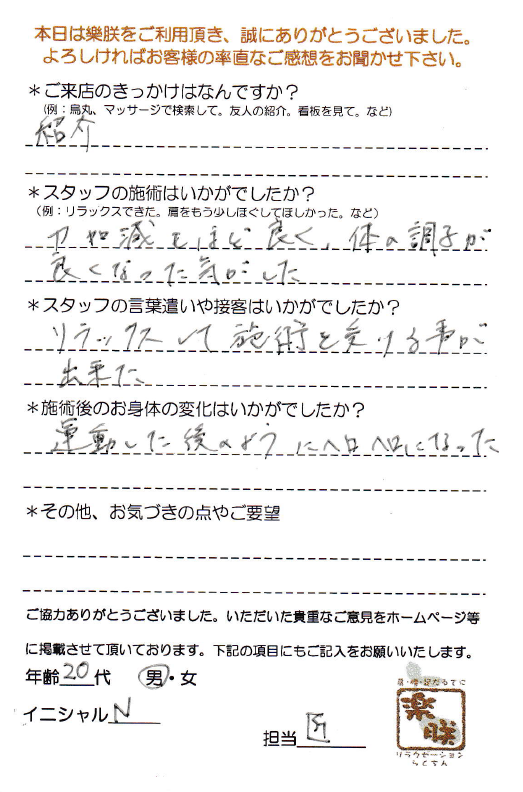 本日は樂朕をご利用頂き、誠にありがとうございました。
よろしければお客様の率直なご感想をお聞かせ下さい。
＊ご来店のきっかけはなんですか？
(例：烏丸、マッサージで検索して。友人の紹介。看板を見て。など)
紹介
＊スタッフの施術はいかがでしたか？
(例：リラックスできた。肩をもう少しほぐしてほしかった。など)
力加減もほど良く、体の調子が
良くなった気がした
＊スタッフの言葉遣いや接客はいかがでしたか？
リラックスして施術を受ける事が
出来た
＊施術後のお身体の変化はいかがでしたか？
運動した後のようにヘロヘロになった
＊その他、お気づきの点やご要望
ご協力ありがとうございました。いただいた貴重なご意見をホームページ等
に掲載させて頂いております。下記の項目にもご記入をお願いいたします。
年齢20代 男・女
イニシャル N
担当
樂朕
リラクゼーション
らくちん